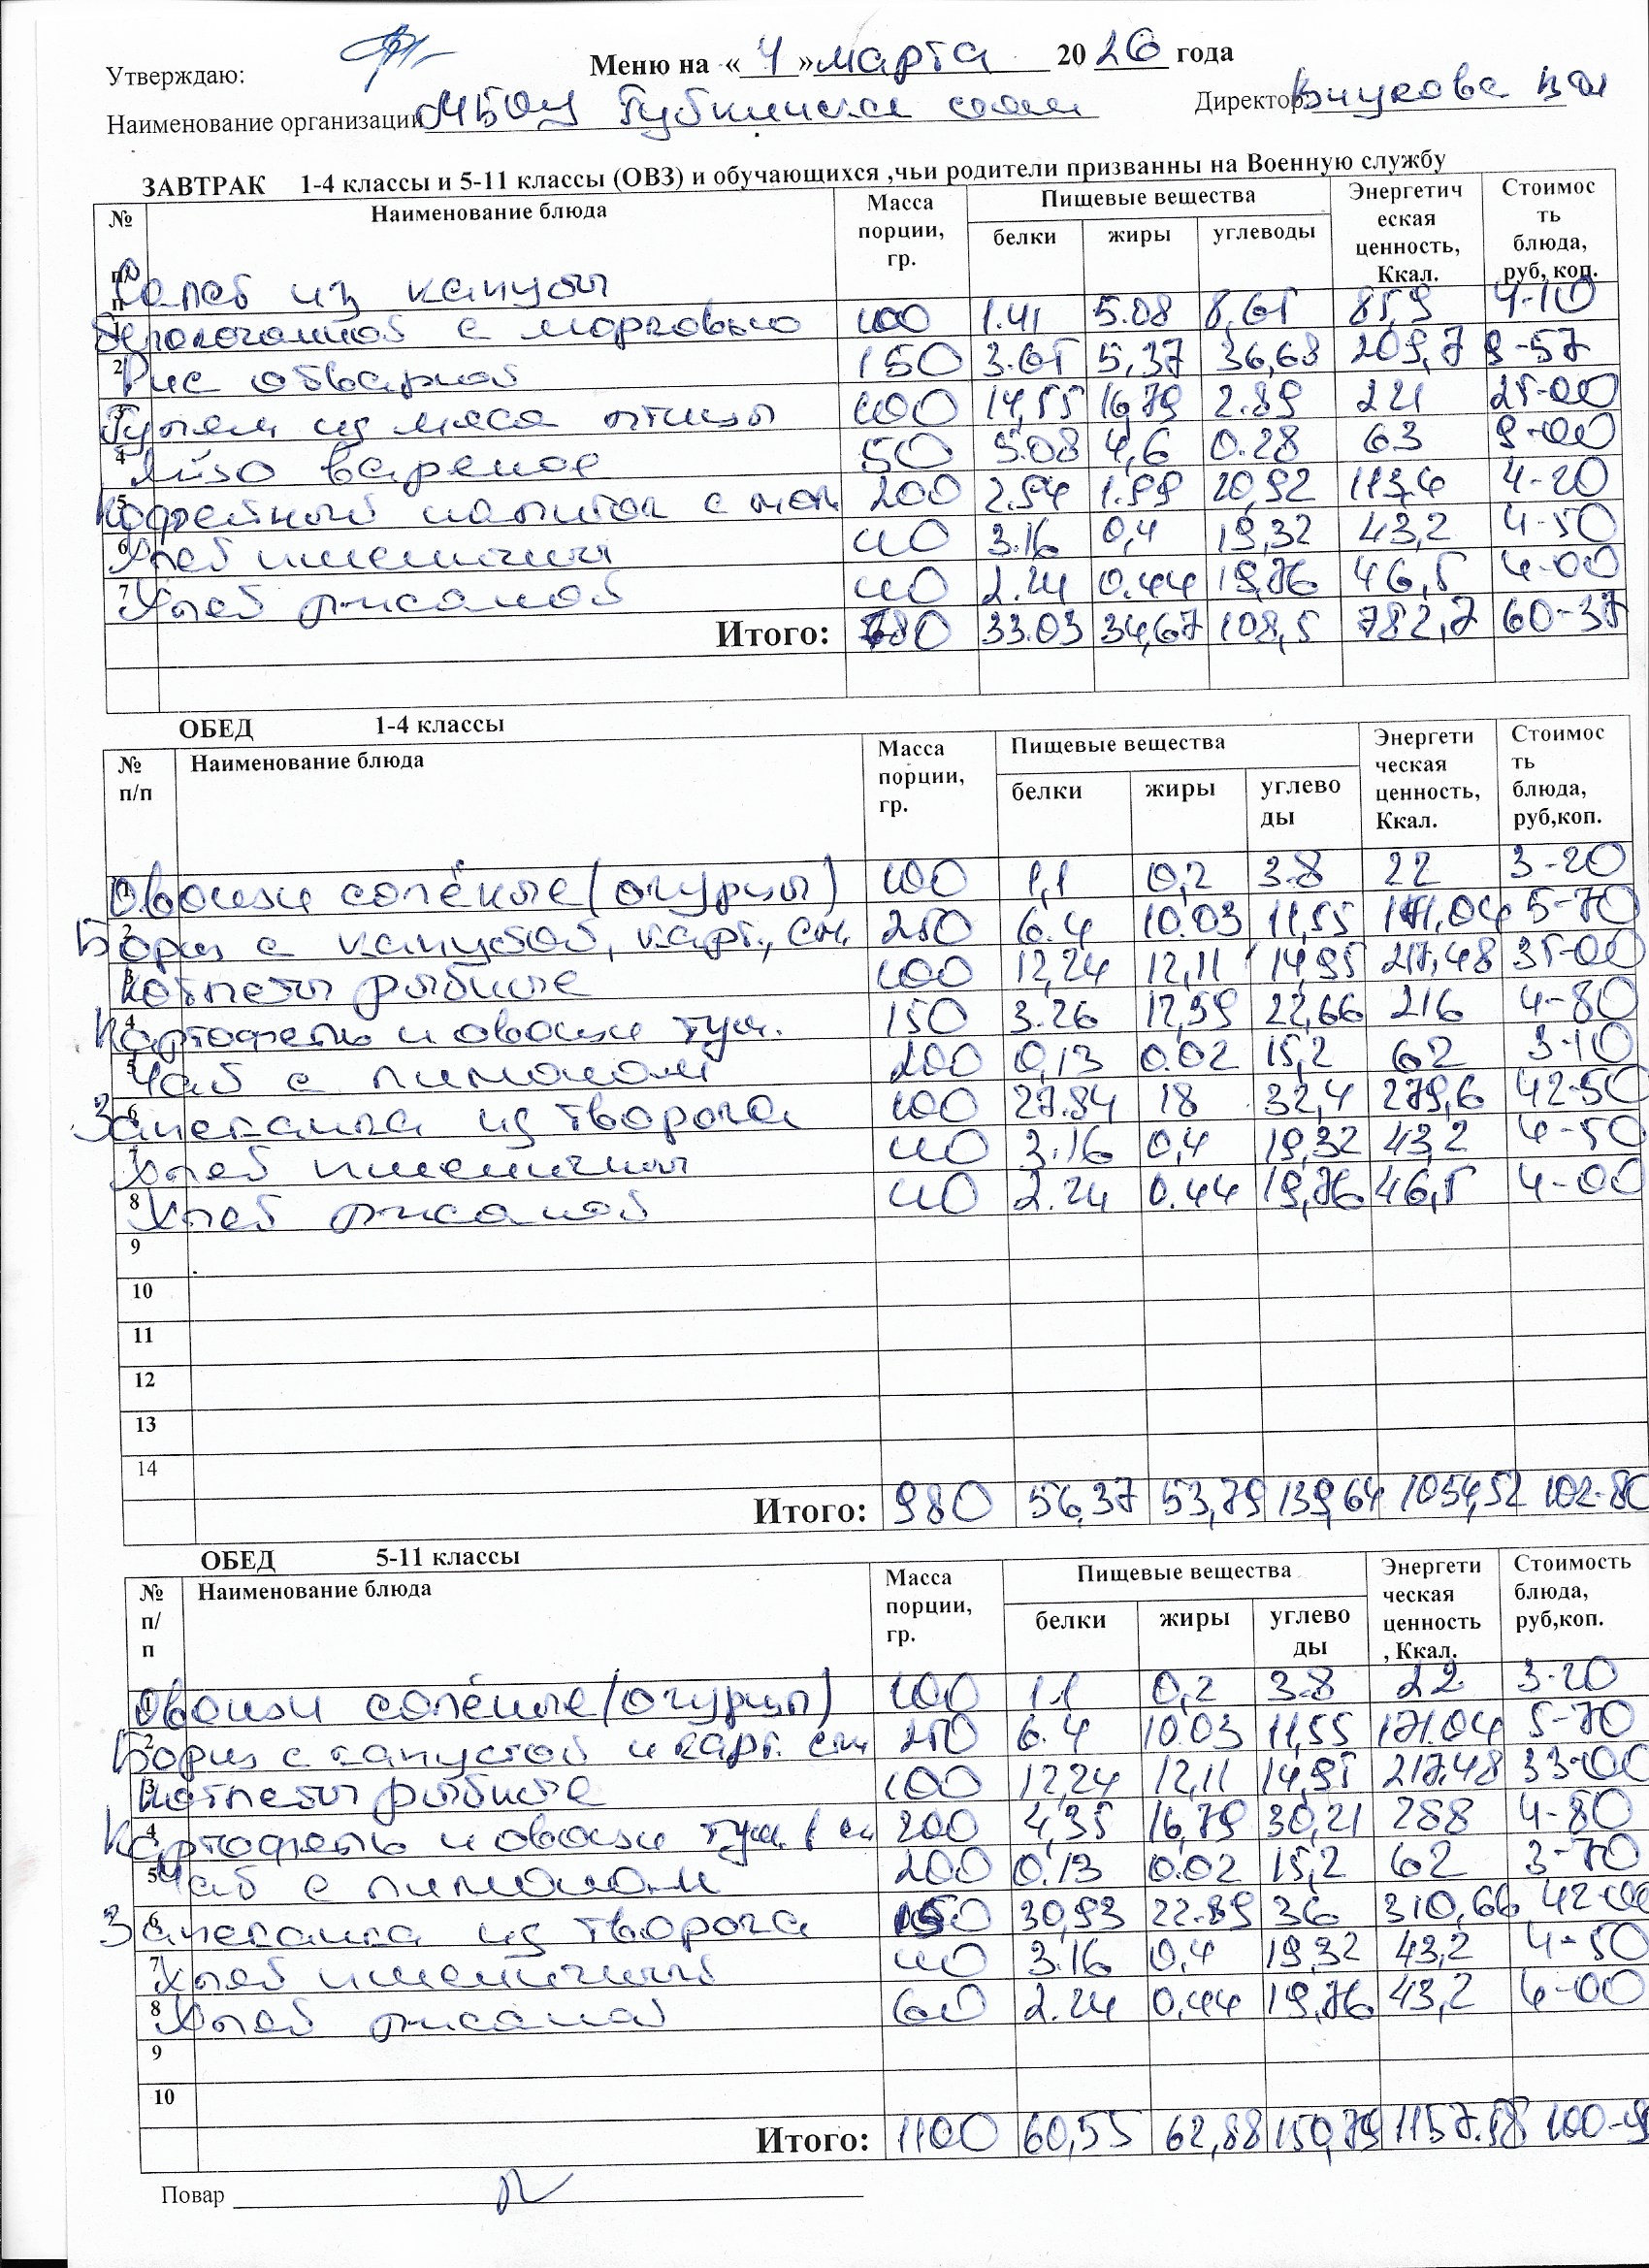 Утверждаю:
Меню на «4» марта 2026 года
Наименование организации МБОУ Губкинская сош
Директор Внукова
ЗАВТРАК 1-4 классы и 5-11 классы (ОВЗ) и обучающихся ,чьи родители призванны на Военную службу
№ п/п Наименование блюда Масса порции, гр. Пищевые вещества Энергетическая ценность, Ккал. Стоимость блюда, руб, коп.
белки жиры углеводы
Салат из капусты
1 белокочанной с морковью 100 1.41 5.08 8,65 85,9 4-10
2 Рис отварной 150 3.65 5,37 36,68 209,7 9-57
3 Гуляш из мяса птицы 100 14,55 16,79 2.89 221 25-00
4 Яйцо вареное 50 5.08 4,6 0.28 63 9-00
5 Кофейный напиток с мол 200 2.94 1.99 20,92 113.4 4-20
6 Хлеб пшеничный 40 3.16 0,4 19,32 43,2 4-50
7 Хлеб ржаной 40 2.24 0.44 19,76 46,5 4-00
Итого: 680 33.03 34,67 108,5 782,7 60-37
ОБЕД 1-4 классы
№ п/п Наименование блюда Масса порции, гр. Пищевые вещества Энергетическая ценность, Ккал. Стоимость блюда, руб,коп.
белки жиры углеводы
1 Овощи солёные (огурцы) 100 1,1 0,2 3.8 22 3-20
2 Борщ с капустой, карт., см. 250 6.4 10.03 11,55 171,04 5-70
3 Котлеты рыбные 100 12,24 12,11 14,95 217,48 35-00
4 Картофель и овощи туш. 150 3.26 12,59 22,66 216 4-80
5 Чай с лимоном 200 0,13 0.02 15,2 62 3-10
6 Запеканка из творога 100 27.84 18 32,4 279,6 42-50
7 Хлеб пшеничный 40 3.16 0,4 19,32 43,2 4-50
8 Хлеб ржаной 40 2.24 0.44 19,76 46,5 4-00
9
10
11
12
13
14
Итого: 980 56,37 53,79 139,64 1054,52 102-80
ОБЕД 5-11 классы
№ п/п Наименование блюда Масса порции, гр. Пищевые вещества Энергетическая ценность, Ккал. Стоимость блюда, руб,коп.
белки жиры углеводы
1 Овощи солёные (огурцы) 100 1.1 0,2 3.8 22 3-20
2 Борщ с капустой и карт. см 250 6.4 10.03 11,55 171.04 5-70
3 Котлеты рыбные 100 12,24 12,11 14,95 217.48 33-00
4 Картофель и овощи туш. 200 4,35 16,79 30,21 288 4-80
5 Чай с лимоном 200 0.13 0.02 15,2 62 3-70
6 Запеканка из творога 150 30,93 22.89 36 310,66 42-00
7 Хлеб пшеничный 40 3.16 0,4 19,32 43,2 4-50
8 Хлеб ржаной 60 2.24 0,44 19,76 43,2 4-00
9
10
Итого: 1100 60,55 62,88 150,79 1157.58
Повар